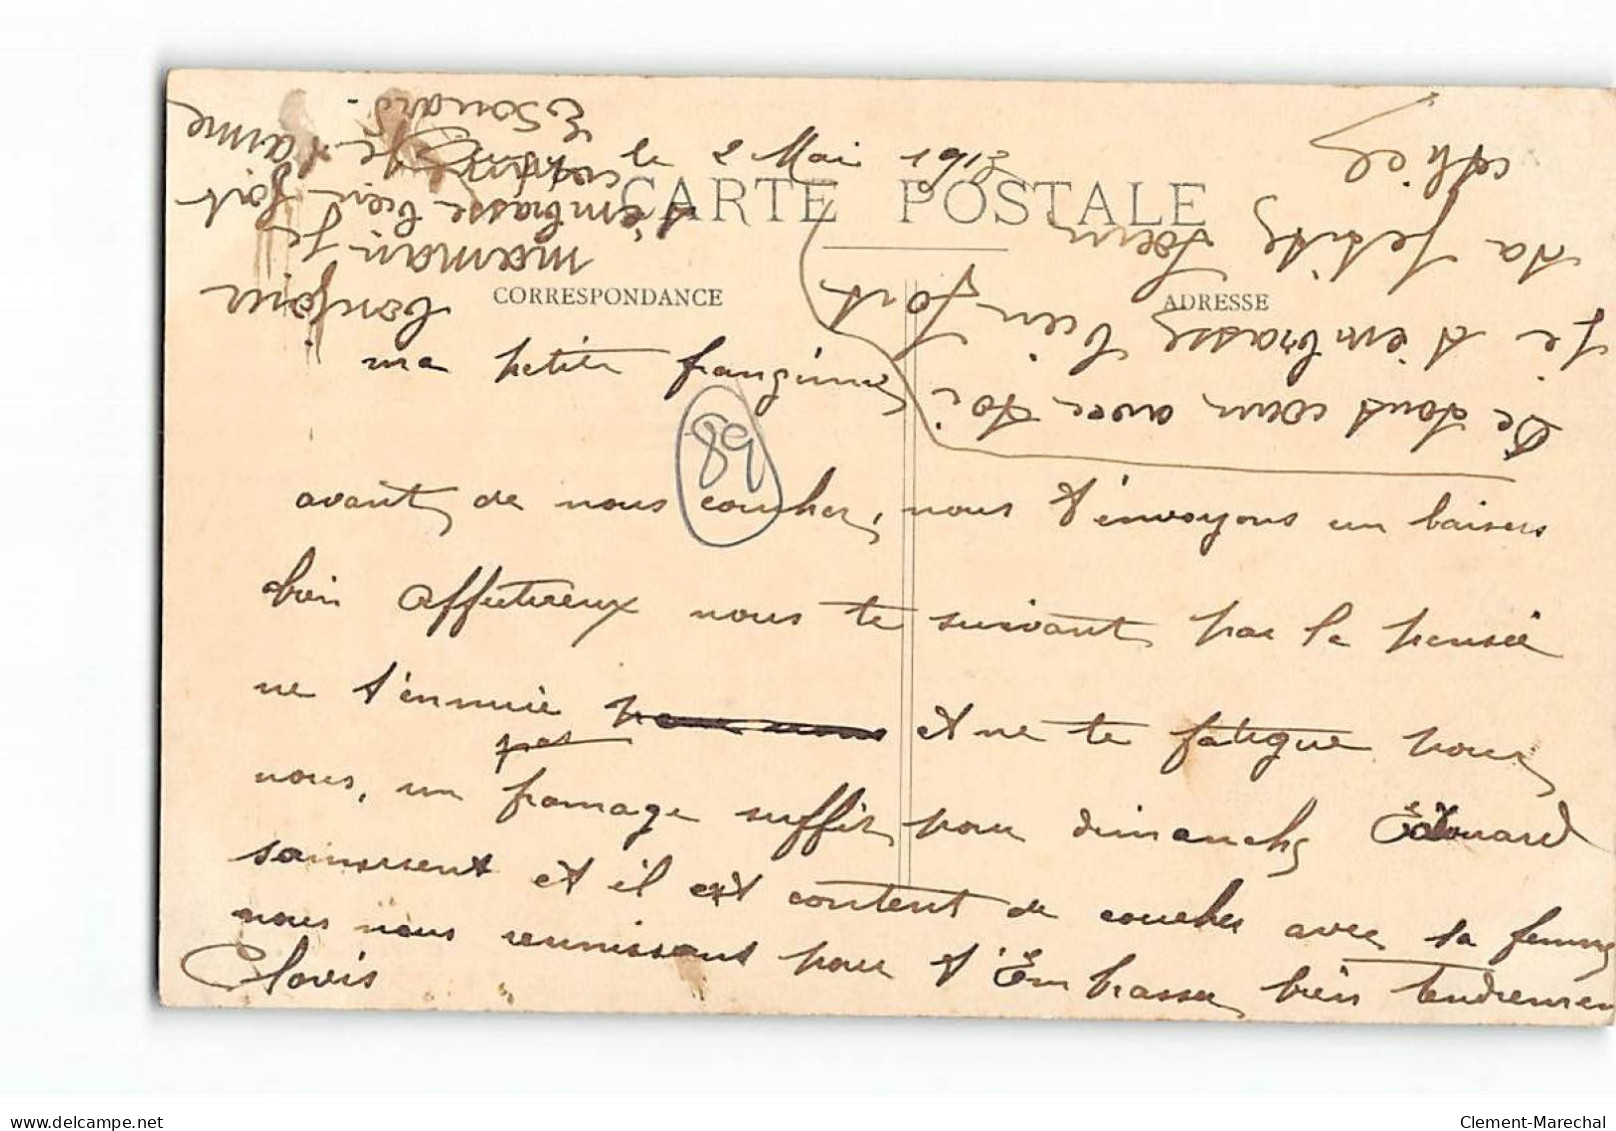 le 2 Mai 191
CARTE POSTALE
CORRESPONDANCE
ADRESSE
ma petite frangine
avant de nous coucher, nous t'envoyons un baisers
bien affectueux nous te suivant par la pensée
ne t'ennuie pas et ne te fatigue pour
nous, un fromage suffit pour dimanche Edouard
et il est content de coucher avec sa femme
nous nous reunissant pour t'Embrasser bien tendremen
Clovis
89
bonjour
maman Je
t'embrasse bien fort
Je t'aime
Edouard.
De tout cœur avec toi
Je t'embrasse bien fort
ta petite sœur
delcampe.net
Clement-Marechal